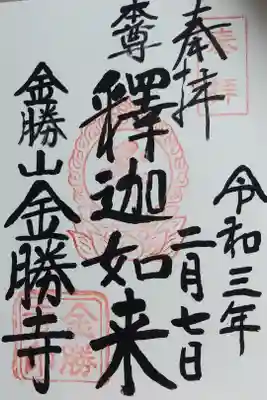 奉拝
令和三年
二月七日
本尊
釋迦如来
金勝山金勝寺